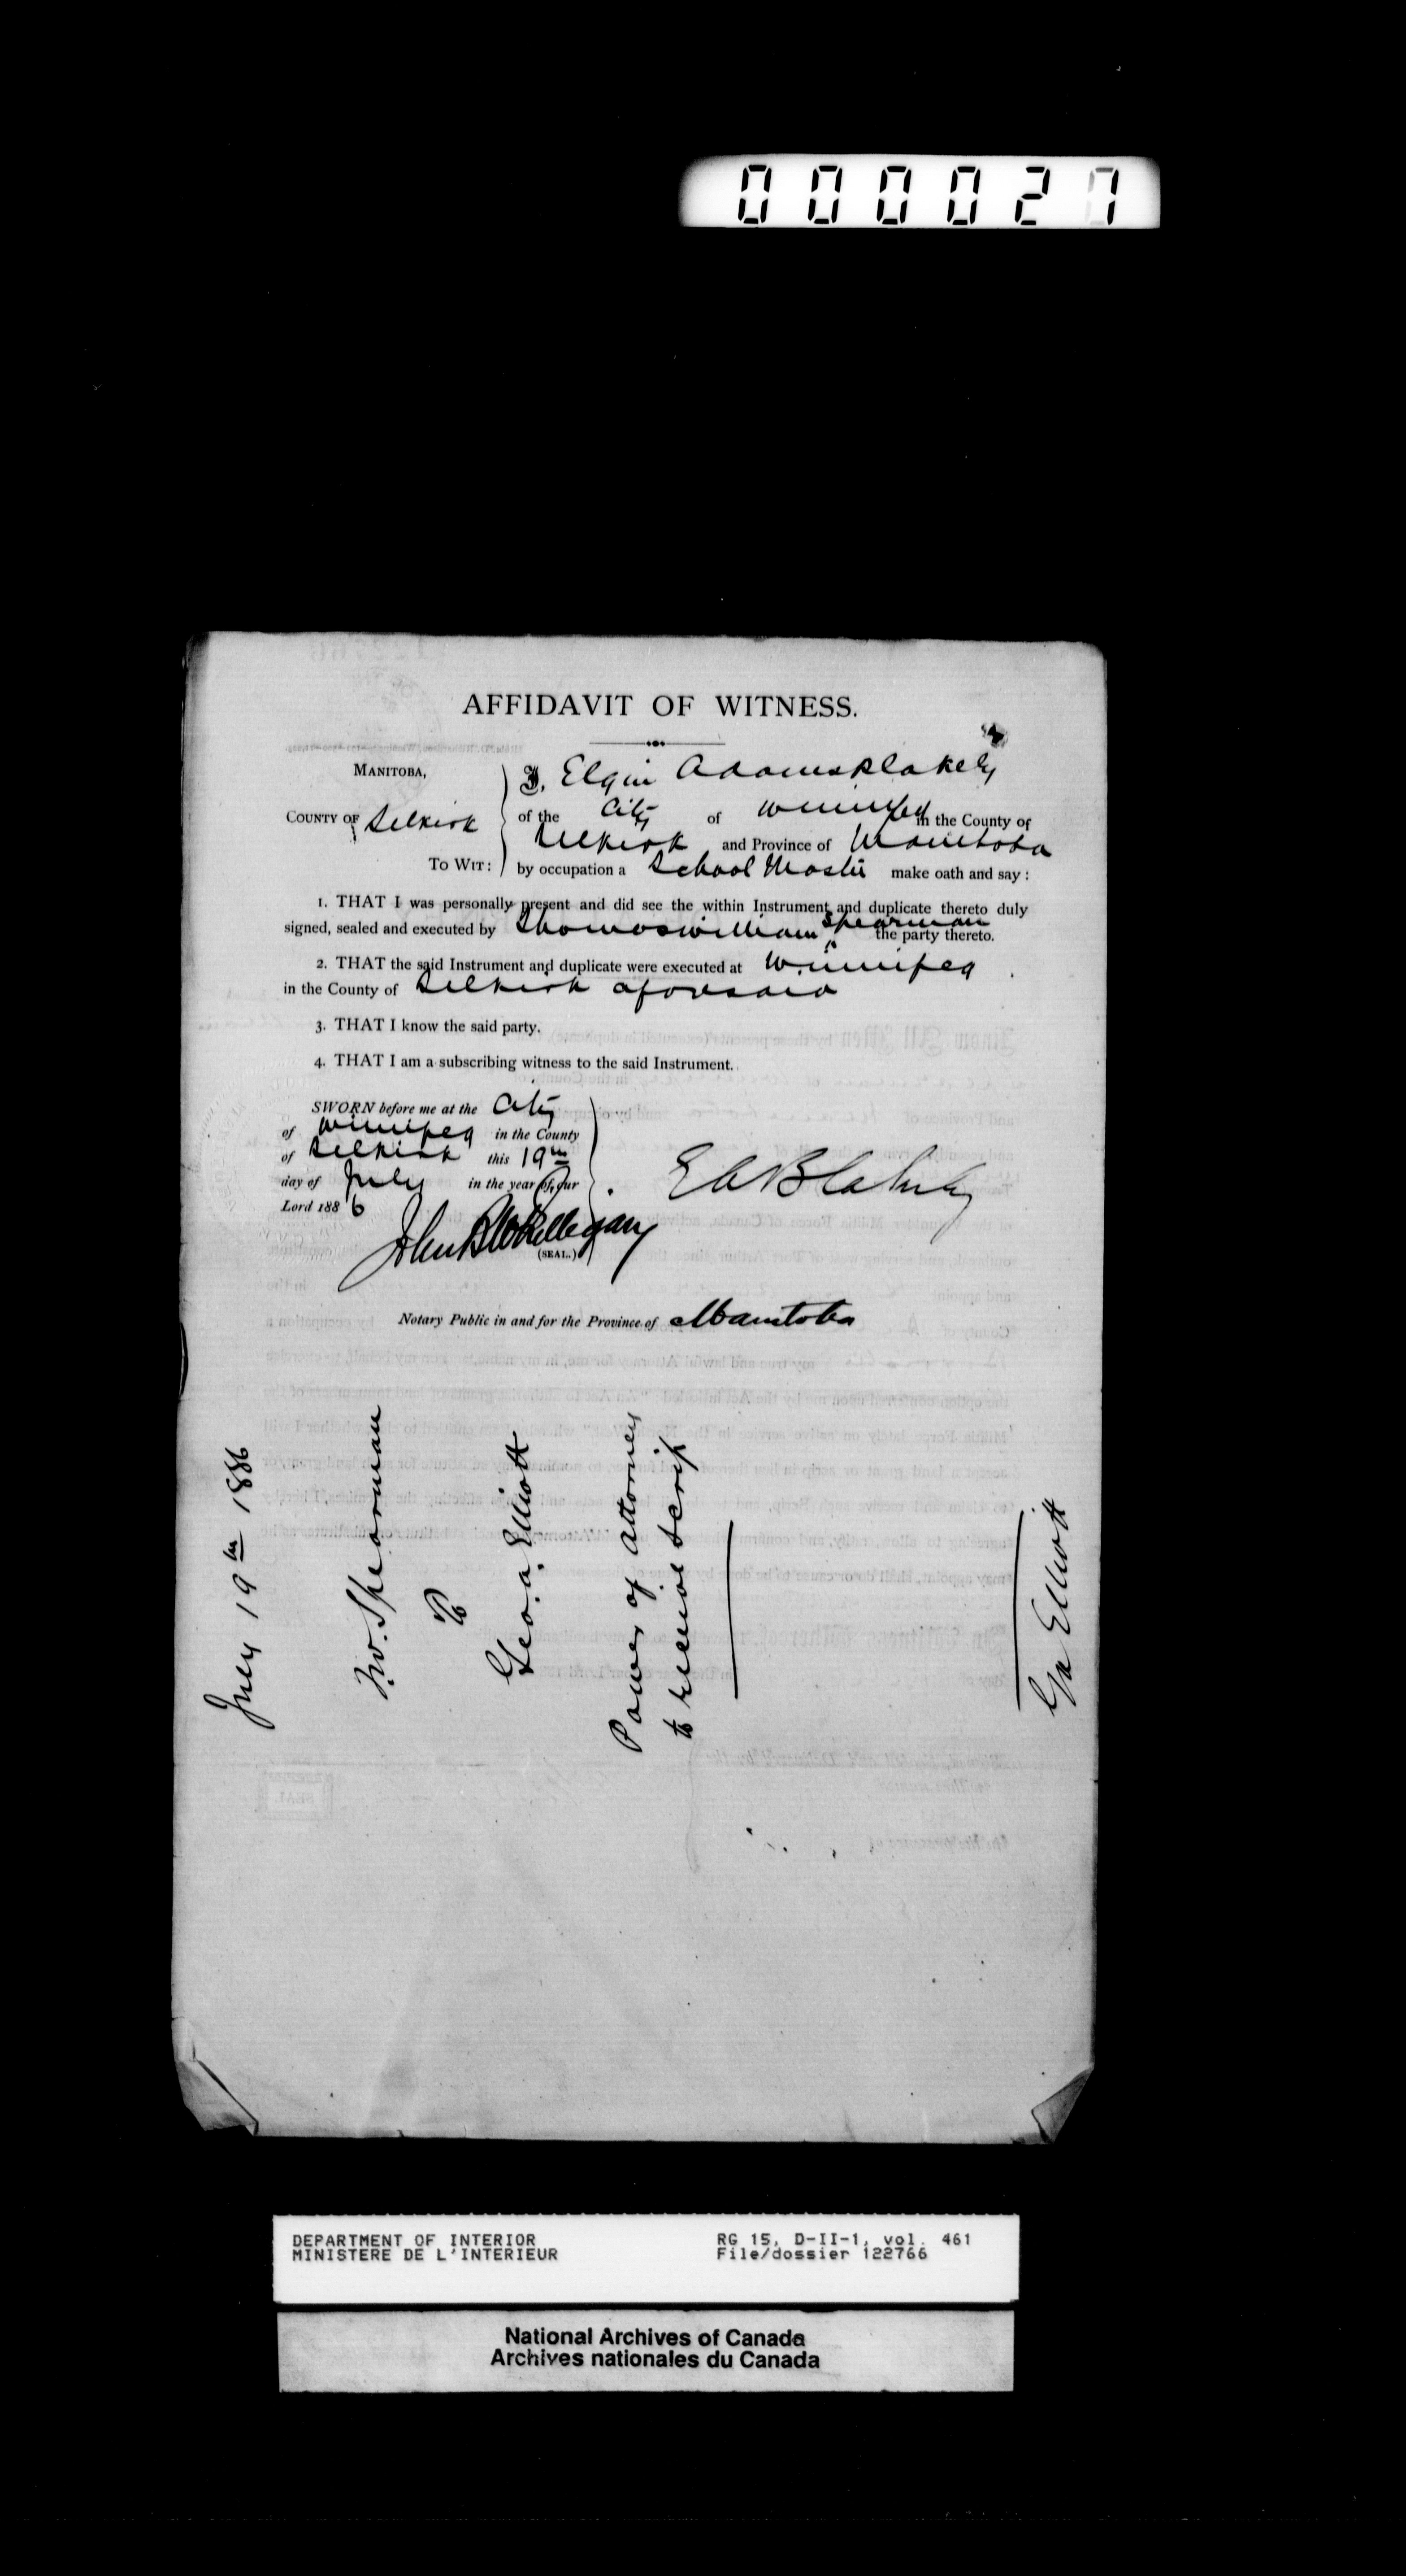 000027
AFFIDAVIT OF WITNESS.
MANITOBA,
I, Elgin Adams Blakely
COUNTY OF Selkirk
of the City of Winnipeg in the County of
Selkirk and Province of Manitoba
TO WIT: by occupation a School Master make oath and say:
1. THAT I was personally present and did see the within Instrument and duplicate thereto duly
signed, sealed and executed by Thomas William Spearman the party thereto.
2. THAT the said Instrument and duplicate were executed at Winnipeg
in the County of Selkirk aforesaid
3. THAT I know the said party.
4. THAT I am a subscribing witness to the said Instrument.
SWORN before me at the City
of Winnipeg in the County
of Selkirk this 19th
day of July in the year of our
Lord 1886
E A Blakely
John B
(SEAL.)
Notary Public in and for the Province of Manitoba
July 19th 1886
Spearman
To
Geo. A. Elliott
Power of Attorney
to receive Scrip
Ga Elliott
DEPARTMENT OF INTERIOR
MINISTERE DE L'INTERIEUR
RG 15, D-II-1, vol. 461
File/dossier 122766
National Archives of Canada
Archives nationales du Canada